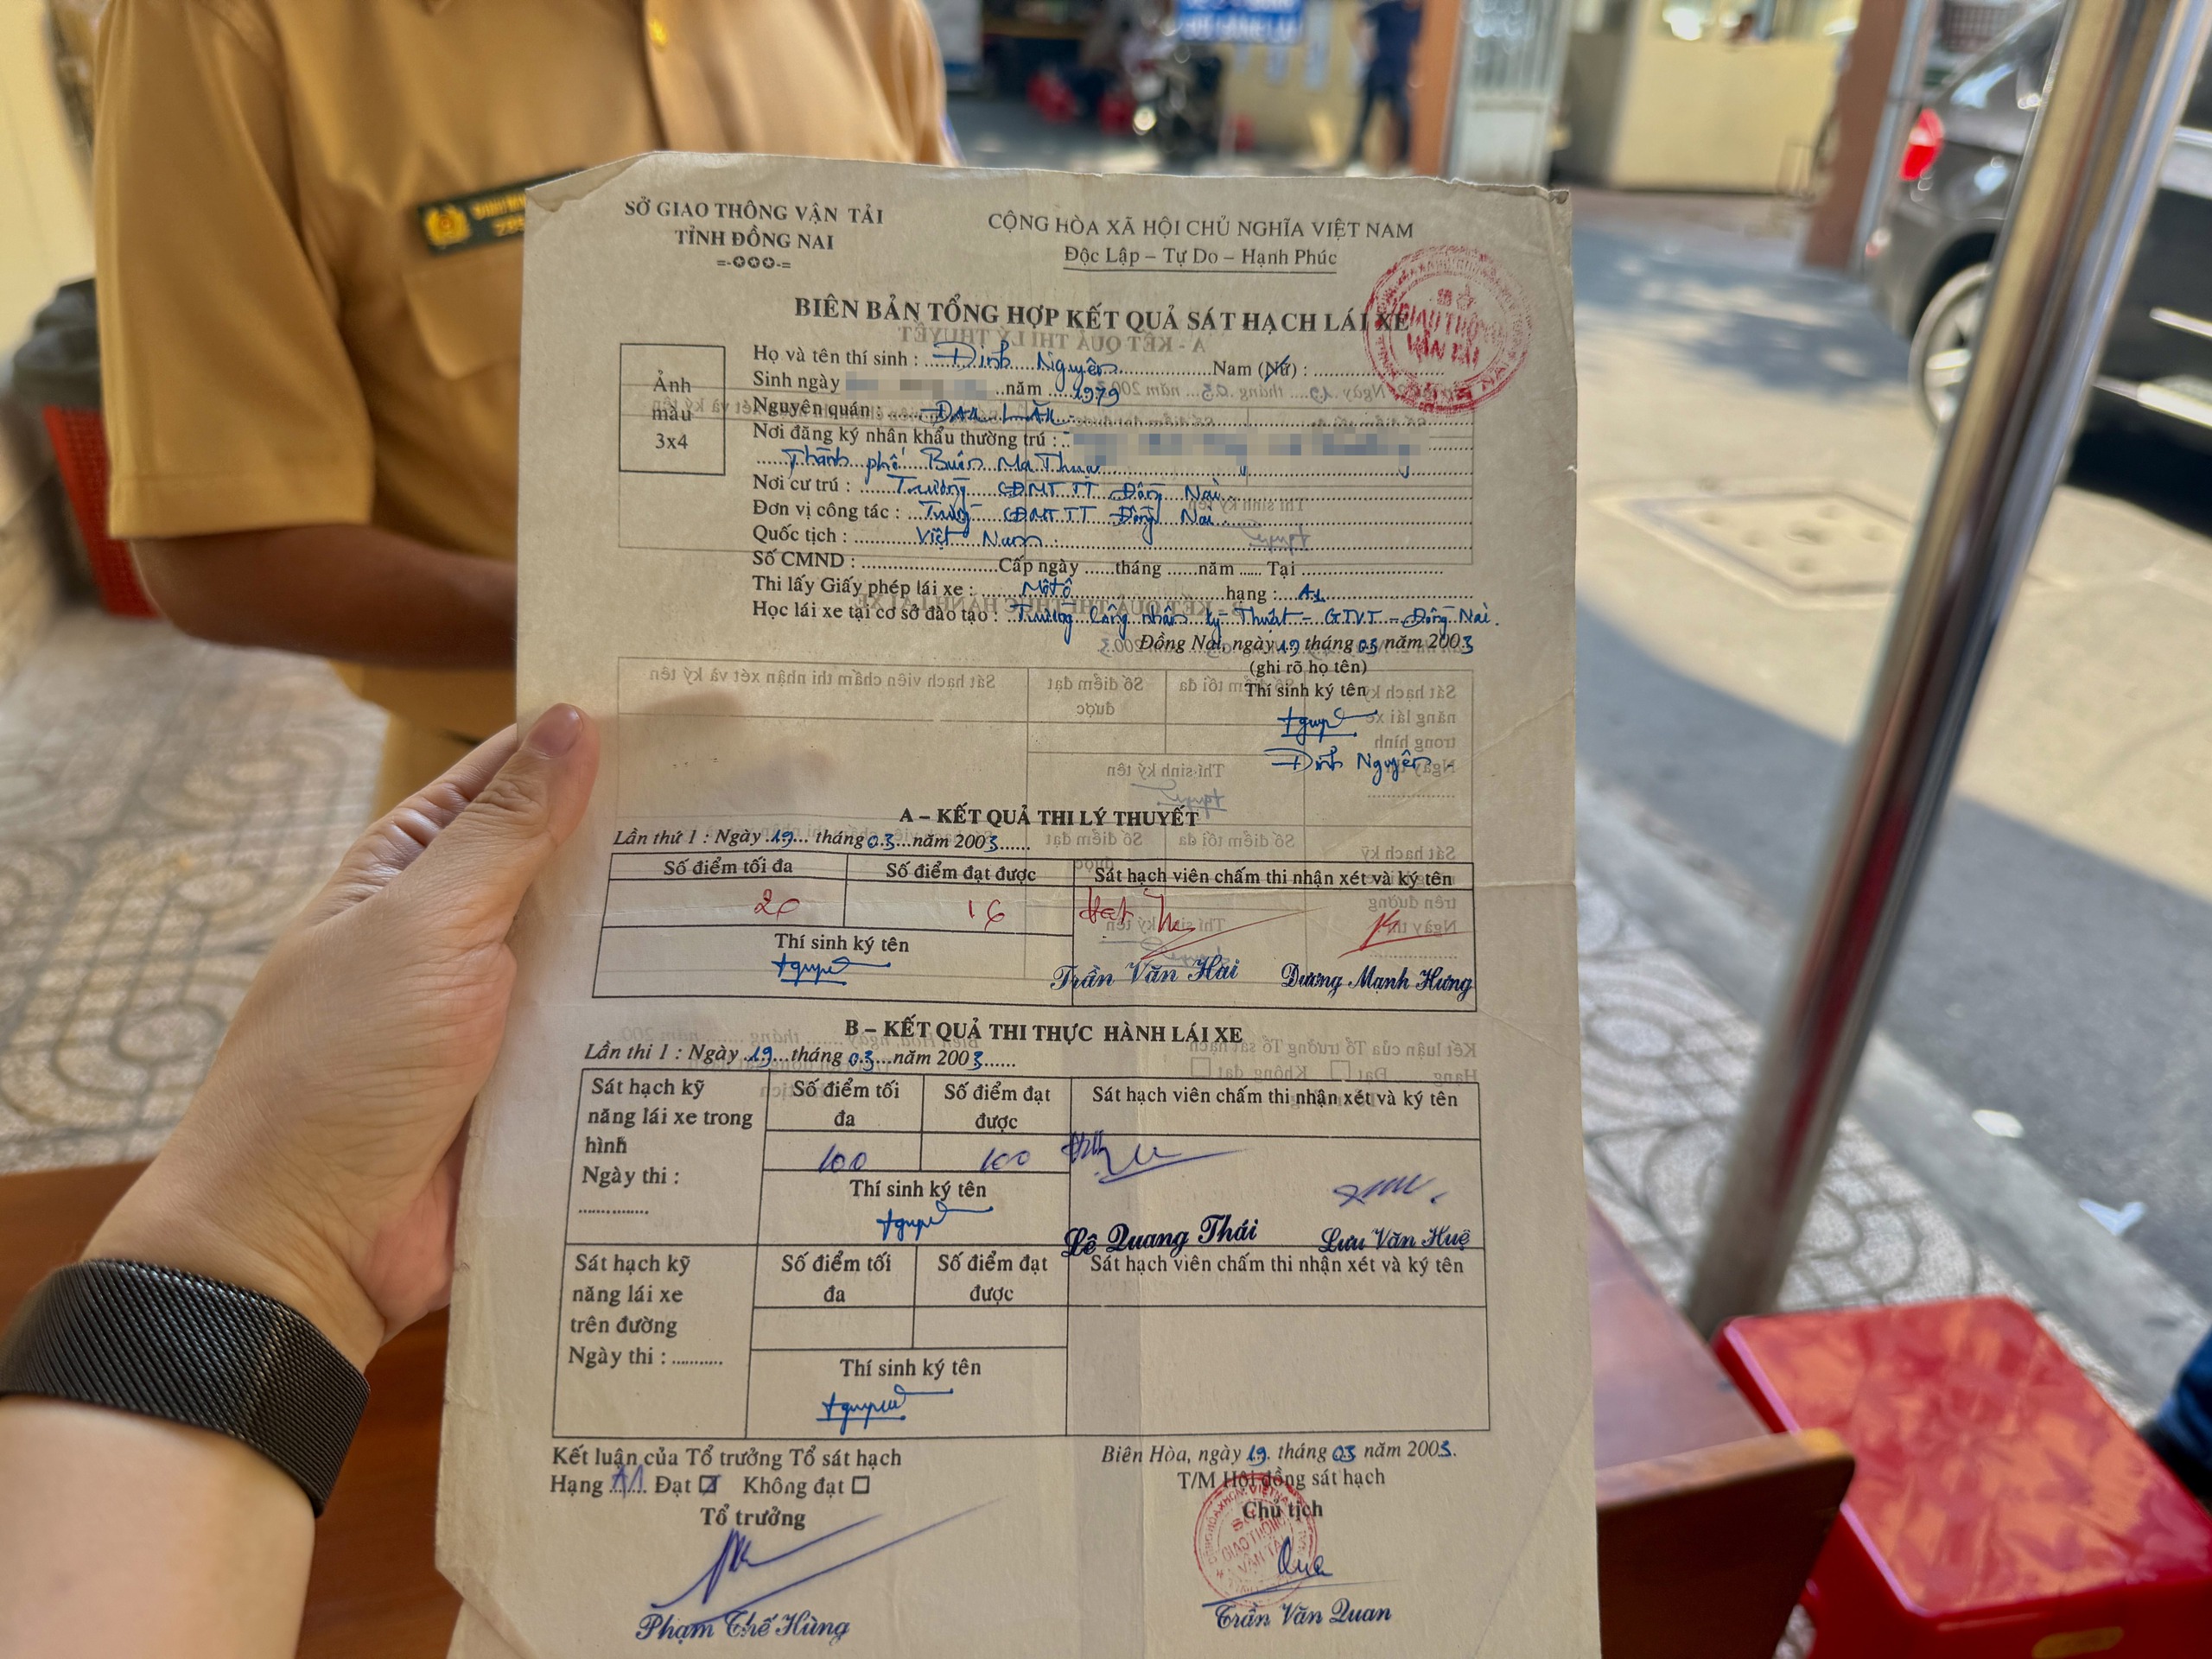 SỞ GIAO THÔNG VẬN TẢI
TỈNH ĐỒNG NAI
CỘNG HÒA XÃ HỘI CHỦ NGHĨA VIỆT NAM
Độc Lập – Tự Do – Hạnh Phúc
GIAO THÔNG
VẬN TẢI
BIÊN BẢN TỔNG HỢP KẾT QUẢ SÁT HẠCH LÁI XE
Ảnh
màu
3x4
Họ và tên thí sinh : Đinh Nguyên Nam (Nữ) :
Sinh ngày năm 1979
Nguyên quán : Đak Lăk
Nơi đăng ký nhân khẩu thường trú :
Thành phố Buôn Ma Thuột
Nơi cư trú : Trường CĐMTTT Đồng Nai
Đơn vị công tác : Trường CĐMTTT Đồng Nai
Quốc tịch : Việt Nam
Số CMND : Cấp ngày tháng năm Tại
Thi lấy Giấy phép lái xe : Môtô hạng : A1
Học lái xe tại cơ sở đào tạo : Trường Công nhân Kỹ Thuật – GTVT – Đồng Nai.
Đồng Nai, ngày 19 tháng 03 năm 2003
(ghi rõ họ tên)
Thí sinh ký tên
Đinh Nguyên
A – KẾT QUẢ THI LÝ THUYẾT
Lần thứ 1 : Ngày 19 tháng 03 năm 2003
Số điểm tối đa Số điểm đạt được Sát hạch viên chấm thi nhận xét và ký tên
20 16 Đạt
Thí sinh ký tên
Trần Văn Hải Dương Mạnh Hưng
B – KẾT QUẢ THI THỰC HÀNH LÁI XE
Lần thi 1 : Ngày 19 tháng 03 năm 2003
Sát hạch kỹ
năng lái xe trong
hình
Ngày thi :
Số điểm tối
đa
Số điểm đạt
được
Sát hạch viên chấm thi nhận xét và ký tên
100 100
Thí sinh ký tên
Lê Quang Thái Lưu Văn Huệ
Sát hạch kỹ
năng lái xe
trên đường
Ngày thi :
Số điểm tối
đa
Số điểm đạt
được
Sát hạch viên chấm thi nhận xét và ký tên
Thí sinh ký tên
Kết luận của Tổ trưởng Tổ sát hạch
Hạng A1 Đạt Không đạt
Tổ trưởng
Phạm Thế Hùng
Biên Hòa, ngày 19 tháng 03 năm 2003.
T/M Hội đồng sát hạch
Chủ tịch
Trần Văn Quan